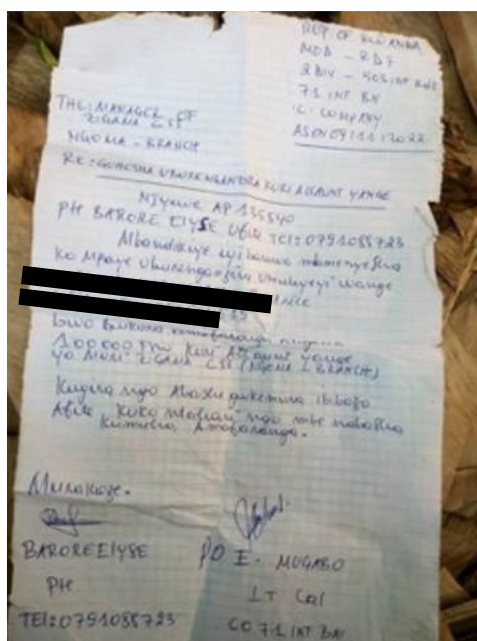 REP OF RWANDA
MOD - RDF
2 DIV - 503 INF BDE
71 INF BN
C. COMPANY
ASON 09/11/2022
THE: MANAGER OF
ZIGAMA CSS
NGOMA - BRANCH
RE: GUHESHA UBURENGANZIRA KURI ACCOUNT YANGE
Njyewe AP 135540
Pte BARORE ELYSE UFite TEL: 0791088723
Mbandikiye iyi baruwa mbamenyesha
ko Mpaye Uburenganzira Umubyeyi wange
bwo
100000 frw Kuri Account yange
yo Muri ZIGAMA CSS (NGOMA - BRANCH)
Kugira ngo Abashe gukemura ibibazo
Afite koko ngo mbe nabasha
Amafaranga.
Murakoze.
BARORE ELYSE
Pte
TEL: 0791088723
E. MUGABO
LT Col
CO 71 INF BN